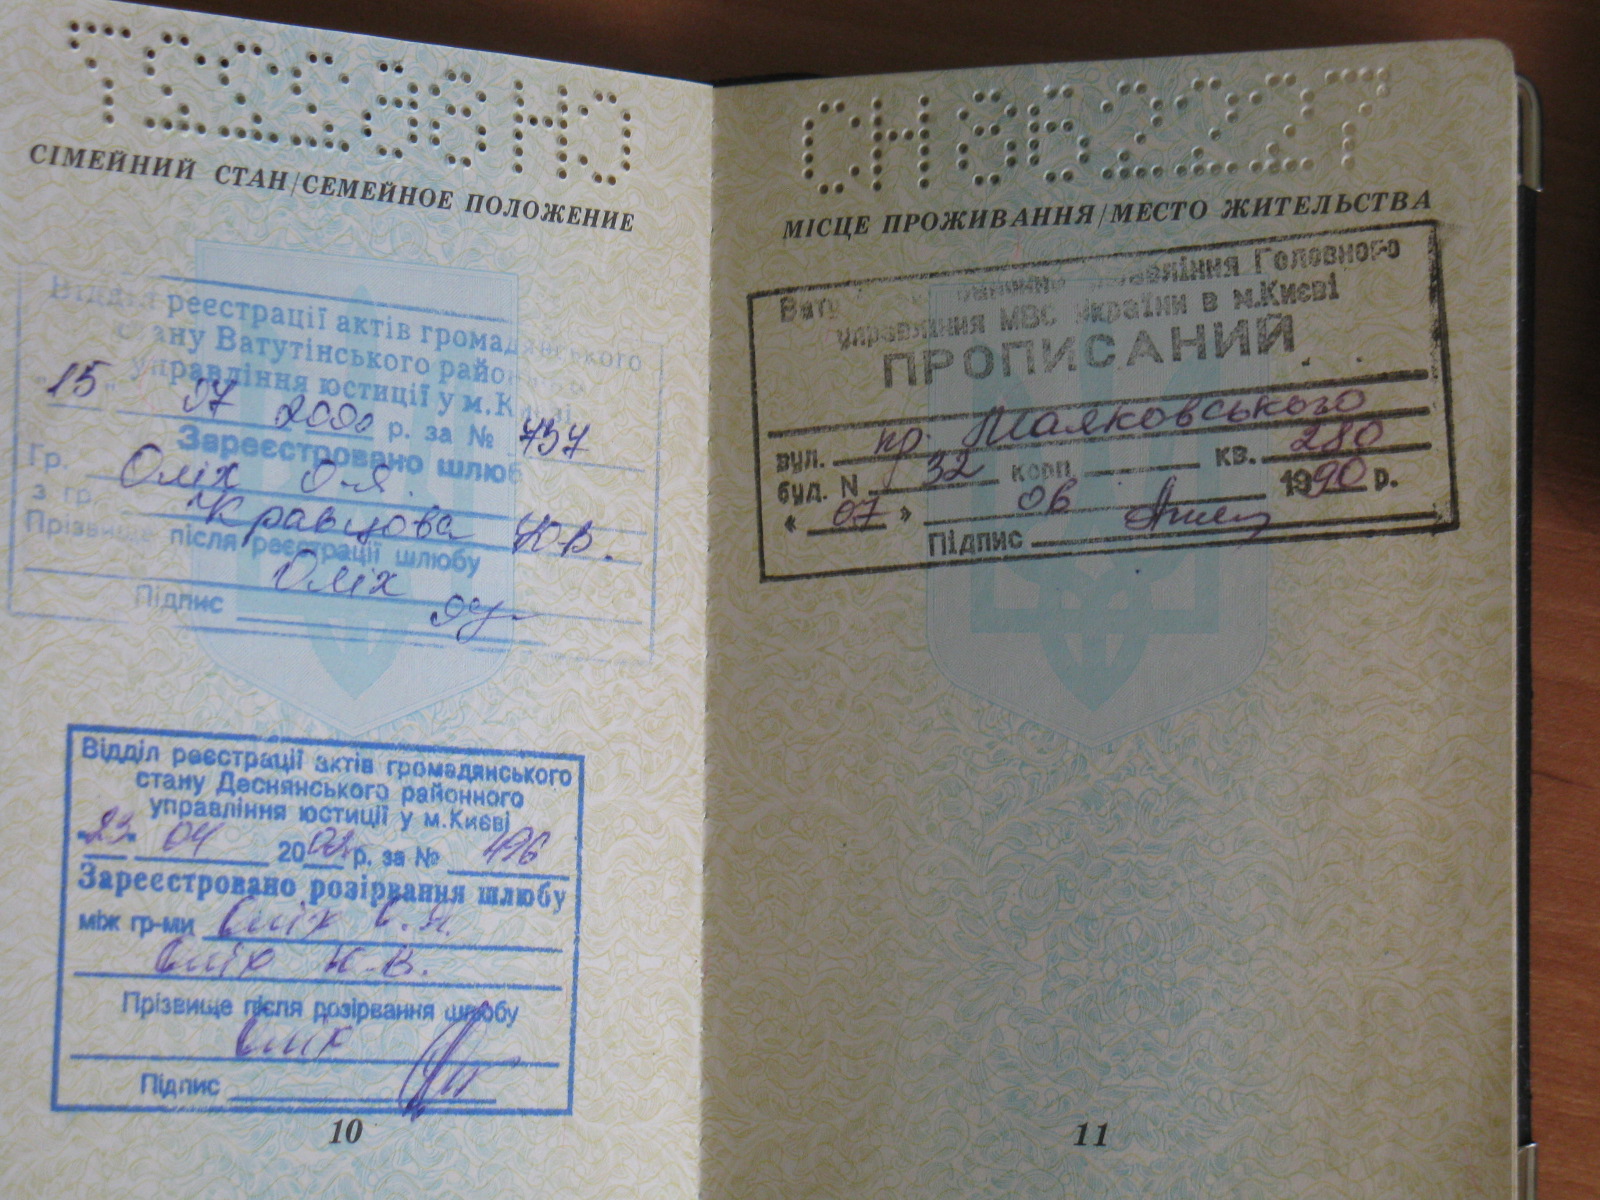 СІМЕЙНИЙ СТАН/СЕМЕЙНОЕ ПОЛОЖЕНИЕ
Відділ реєстрації актів громадянського
стану Ватутінського районного
управління юстиції у м.Києві
"15" 07 2000 р. за № 737
Зареєстровано шлюб
Гр. Оліх О.Я.
з гр. Кравцова Ю.В.
Прізвище після реєстрації шлюбу
Оліх
Підпис
Відділ реєстрації актів громадянського
стану Деснянського районного
управління юстиції у м.Києві
"23" 04 2002 р. за № 496
Зареєстровано розірвання шлюбу
між гр-ми Оліх О.Я.
Оліх Ю.В.
Прізвище після розірвання шлюбу
Оліх
Підпис
10
СН 862227
МІСЦЕ ПРОЖИВАННЯ/МЕСТО ЖИТЕЛЬСТВА
управління Головного
управління МВС України в м.Києві
ПРОПИСАНИЙ
вул. пр. Маяковського
буд. N 32 корп. кв. 280
« 07 » 08 1990 р.
Підпис
11